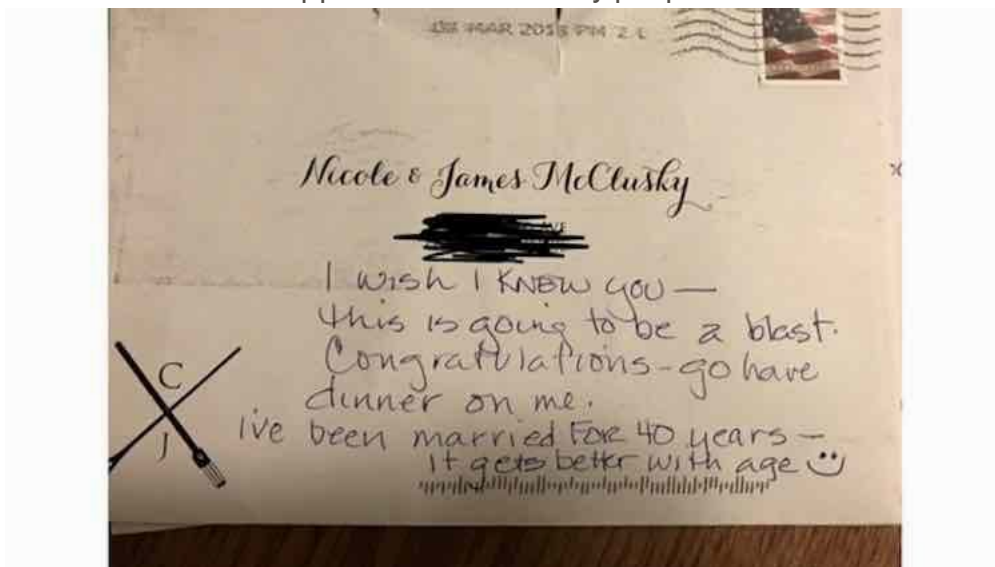 MAR 2018 PM 2 L
Nicole & James McClusky
AVE
I WISH I KNEW YOU —
this is going to be a blast.
Congratulations - go have
dinner on me.
I've been married FOR 40 years —
It gets better with age
C
J